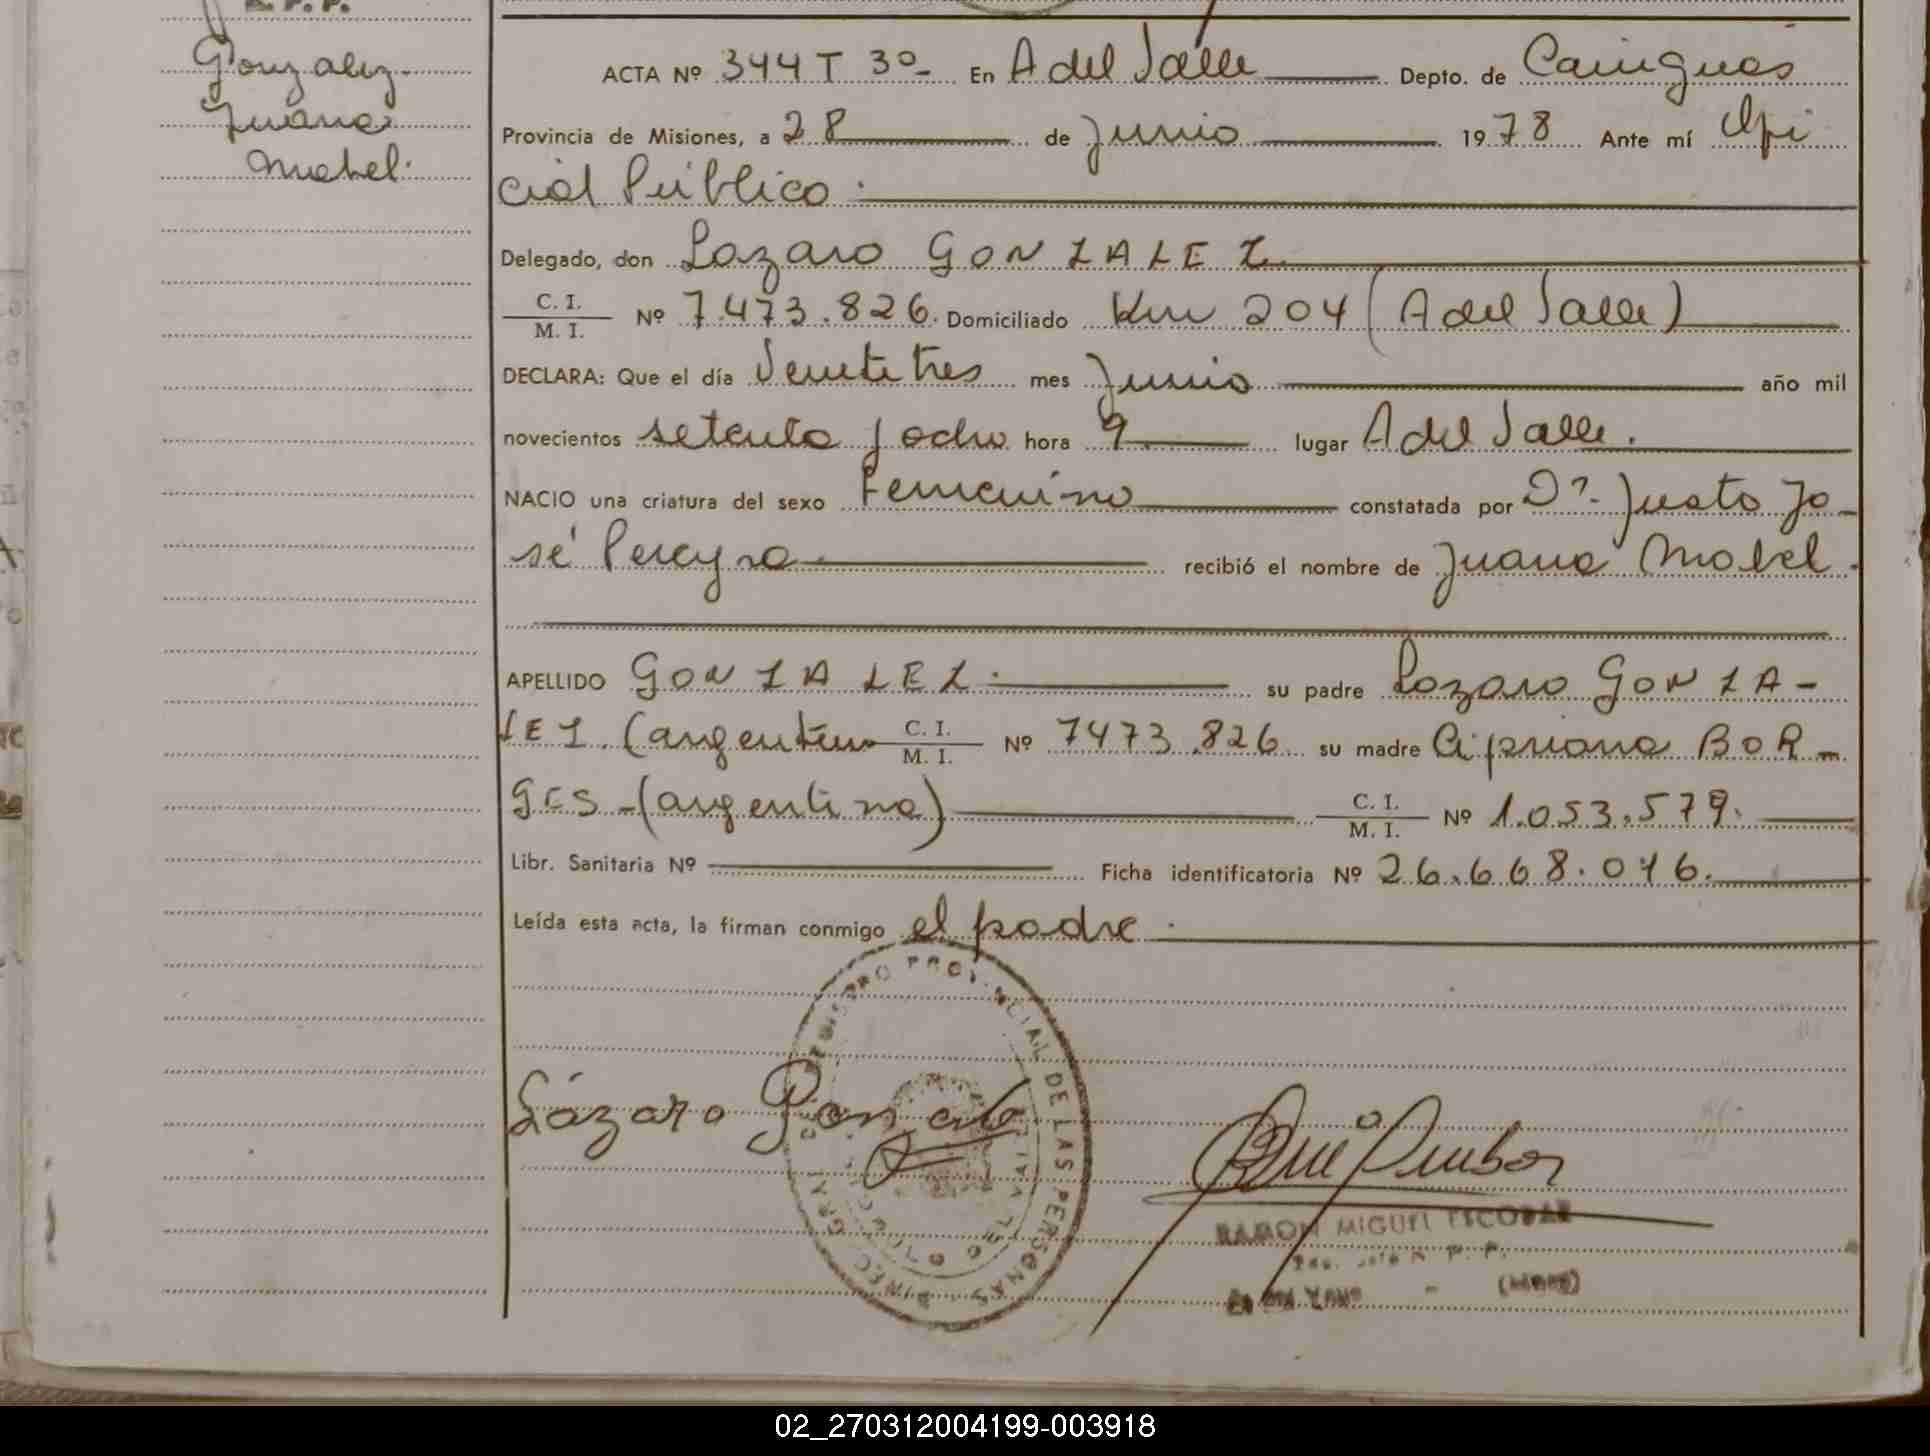 Gonzalez
Juana
Mabel.
ACTA Nº 344 T 3º- En A del Valle Depto. de Cainguas
Provincia de Misiones, a 28 de Junio 1978 Ante mí Ofi
cial Público.
Delegado, don Lazaro GONZALEZ
C. I. / M. I. Nº 7.473.826. Domiciliado Km 204 (A del Valle)
DECLARA: Que el día Veintitres mes Junio año mil
novecientos setenta y ocho hora 9 lugar A del Valle.
NACIO una criatura del sexo Femenino constatada por Dr. Justo Jo-
sé Pereyra recibió el nombre de Juana Mabel.
APELLIDO GONZALEZ. su padre Lazaro GONZA-
LEZ. (argentino C. I. / M. I. Nº 7473.826 su madre Cipriana BOR-
GES-(argentina) C. I. / M. I. Nº 1.053.579.
Libr. Sanitaria Nº Ficha identificatoria Nº 26.668.016.
Leída esta acta, la firman conmigo el padre.
REGISTRO PROVINCIAL DE LAS PERSONAS
Lázaro Gonzalez
RAMON MIGUEL ESCOBAR
02_270312004199-003918